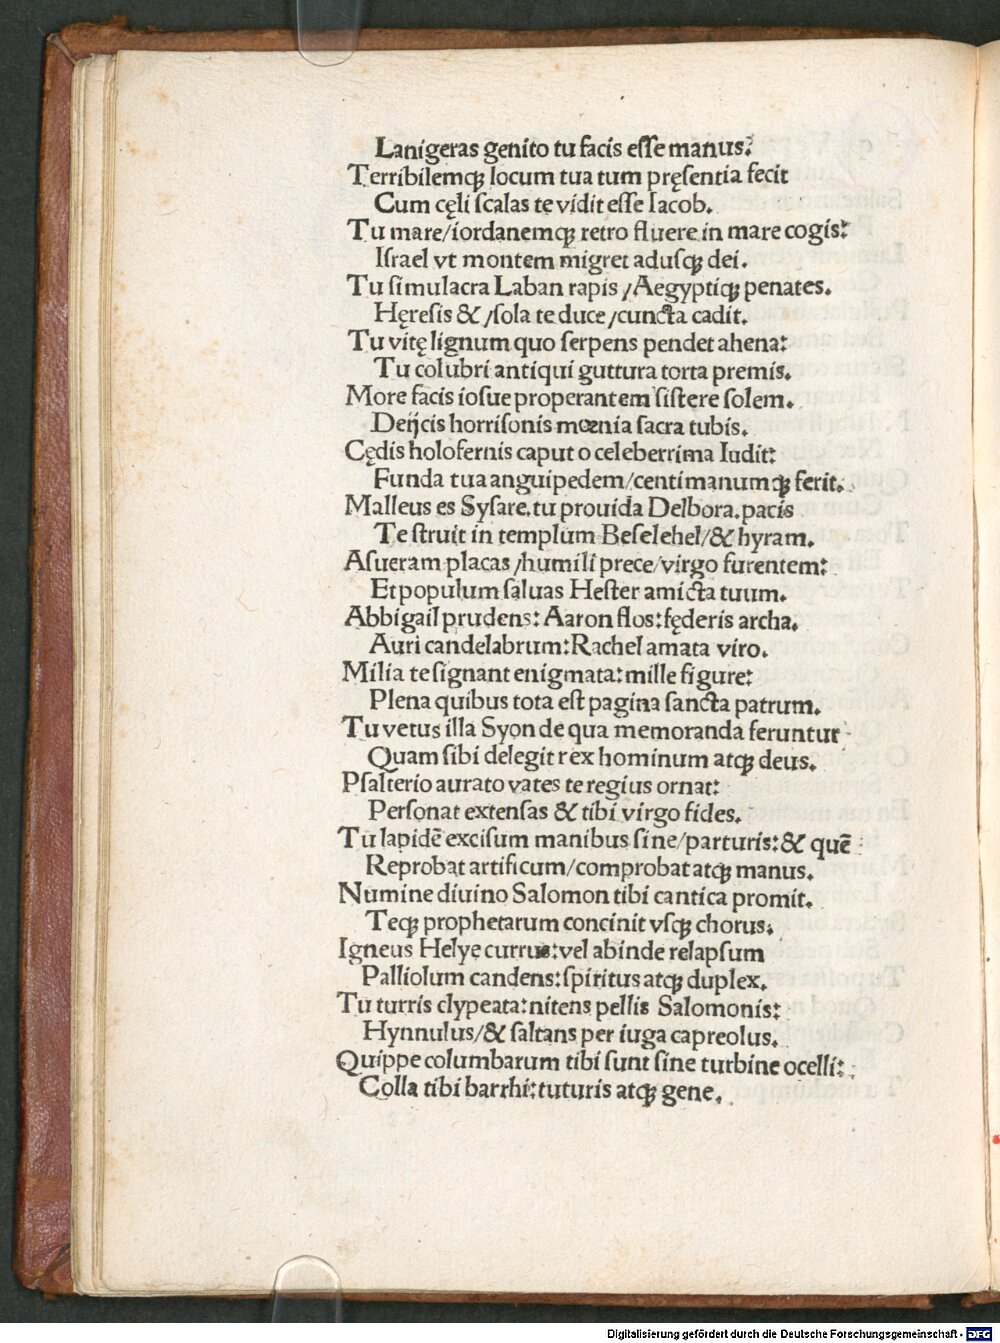 Lanigeras genito tu facis eſſe manus:
Terribilemꝗ locum tua tum pręſentia fecit
Cum cęli ſcalas te vidit eſſe Iacob.
Tu mare/iordanemꝗ retro fluere in mare cogis:
Iſrael vt montem migret aduſꝗ dei.
Tu ſimulacra Laban rapis /Aegyptiꝗ penates.
Hęreſis & /ſola te duce/cuncta cadit.
Tu vitę lignum quo ſerpens pendet ahena:
Tu colubri antiqui guttura torta premis.
More facis ioſue properantem ſiſtere ſolem.
Deijcis horriſonis mœnia ſacra tubis.
Cędis holofernis caput o celeberrima Iudit:
Funda tua anguipedem/centimanumꝗ ferit.
Malleus es Syſare.tu prouida Delbora.pacis
Te ſtruit in templum Beſelehel/& hyram.
Aſueram placas /humili prece/virgo furentem:
Et populum ſaluas Heſter amicta tuum.
Abbigail prudens: Aaron flos: fęderis archa.
Auri candelabrum: Rachel amata viro.
Milia te ſignant enigmata: mille figure:
Plena quibus tota eſt pagina ſancta patrum.
Tu vetus illa Syon de qua memoranda feruntur
Quam ſibi delegit rex hominum atꝗ deus.
Pſalterio aurato vates te regius ornat:
Perſonat extenſas & tibi virgo fides.
Tu lapidē exciſum manibus ſine/parturis: & quē
Reprobat artificum/comprobat atꝗ manus.
Numine diuino Salomon tibi cantica promit.
Teꝗ prophetarum concinit vſꝗ chorus.
Igneus Helyę currus: vel abinde relapſum
Palliolum candens: ſpiritus atꝗ duplex.
Tu turris clypeata: nitens pellis Salomonis:
Hynnulus/& ſaltans per iuga capreolus.
Quippe columbarum tibi ſunt ſine turbine ocelli:
Colla tibi barrhi: tuturis atꝗ gene.
Digitalisierung gefördert durch die Deutsche Forschungsgemeinschaft - DFG